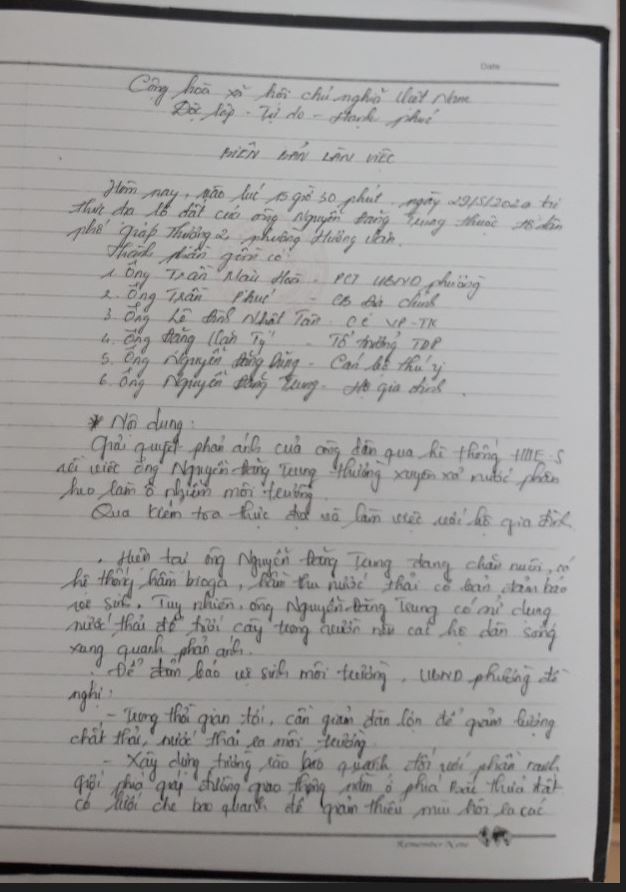 Date
Cộng hòa xã hội chủ nghĩa Việt Nam
Độc lập - Tự do - Hạnh phúc
BIÊN BẢN LÀM VIỆC
Hôm nay, vào lúc 15 giờ 30 phút, ngày 29/5/2020 tại
thực địa lô đất của ông Nguyễn Đăng Trung thuộc tổ dân
phố Giáp Thượng 2, phường Hương Văn.
Thành phần gồm có:
1. Ông Trần - PCT UBND phường
2. Ông Trần Phúc - CB Địa chính
3. Ông Lê Đình Nhật Tân - CC VP-TK
4. Ông Đặng Văn Tý - Tổ trưởng TDP
5. Ông Nguyễn Đăng Dũng - Cán bộ thú y
6. Ông Nguyễn Đăng Trung - Hộ gia đình.
* Nội dung:
Giải quyết phản ánh của công dân qua hệ thống HUE-S
về việc ông Nguyễn Đăng Trung thường xuyên xả nước phân
heo làm ô nhiễm môi trường.
Qua kiểm tra thực địa và làm việc với hộ gia đình
. Hiện tại ông Nguyễn Đăng Trung đang chăn nuôi, có
hệ thống hầm bioga, hầm thu nước thải cơ bản đảm bảo
vệ sinh. Tuy nhiên, ông Nguyễn Đăng Trung có sử dụng
nước thải để tưới cây trong vườn nên các hộ dân sống
xung quanh phản ánh.
. Để đảm bảo vệ sinh môi trường, UBND phường đề
nghị:
- Trong thời gian tới, cần giảm đàn lợn để giảm lượng
chất thải, nước thải ra môi trường.
- Xây dựng tường rào bao quanh đối với phần ranh
giới phía giáp đường giao thông nằm ở phía thửa đất,
có lưới che bao quanh để giảm thiểu mùi hôi ra các
Remember Note